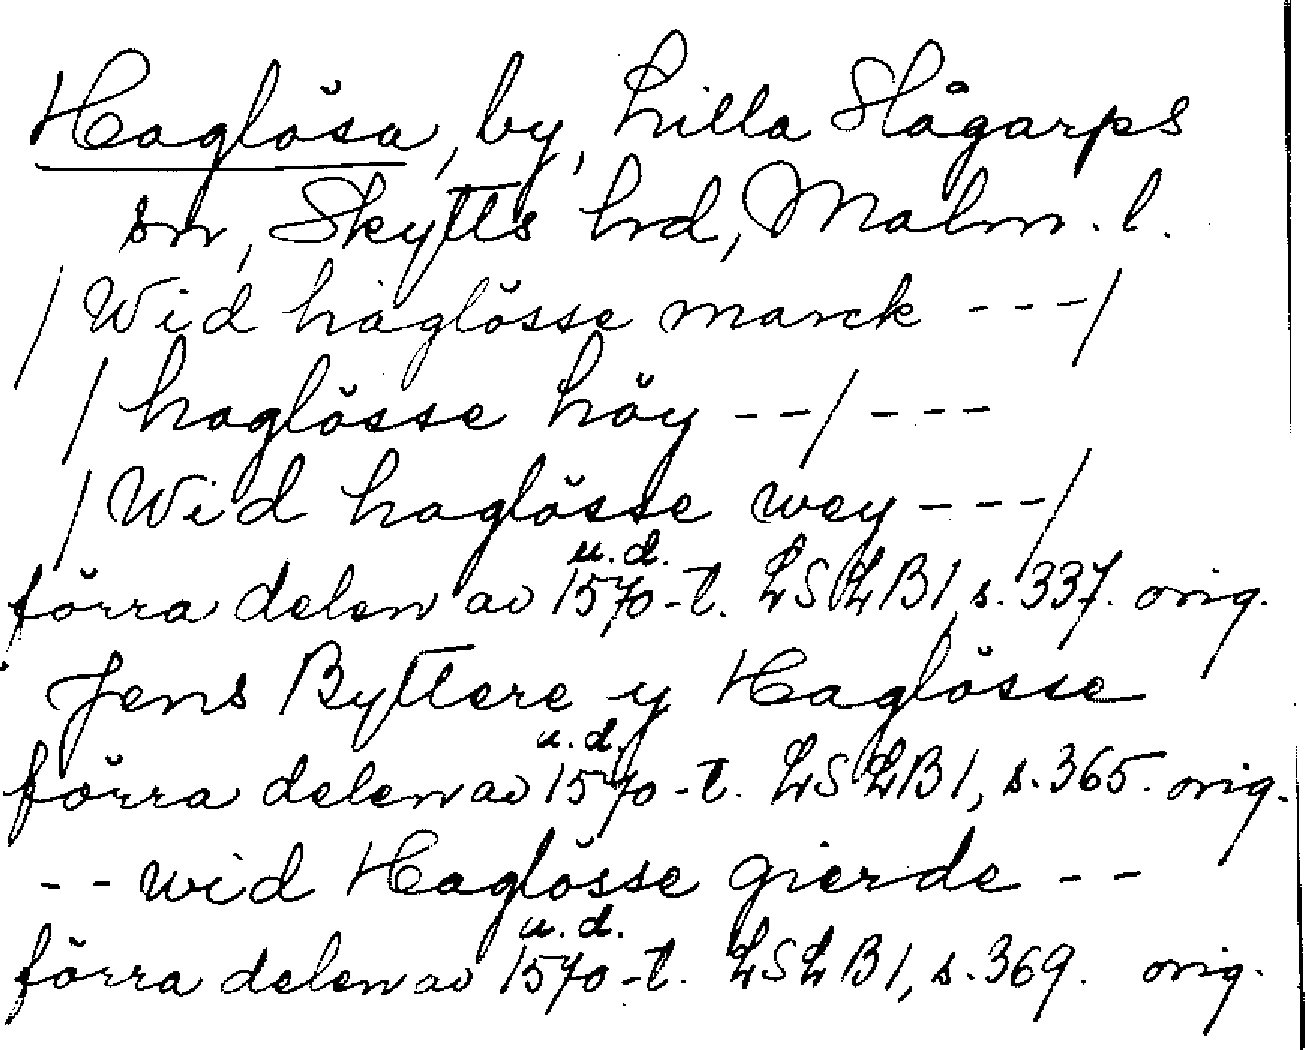 Haglösa, by, Lilla Slågarps
sn, Skytts hd, Malm. l.
/ Wid haglösse marck - - - /
/ haglösse höy - - / - - -
/ Wid haglösse wey - - - /
u.d.
förra delen av 1570-t. LSLB1, s. 337. orig.
Jens Byttere y Haglösse
u.d.
förra delen av 1570-t. LSLB1, s. 365. orig.
- - wid Haglösse gierde - -
u.d.
förra delen av 1570-t. LSLB1, s. 369. orig.